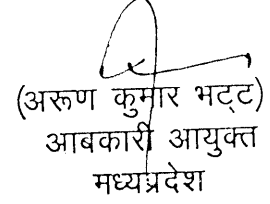 (अरूण कुमार भट्ट)
आबकारी आयुक्त
मध्यप्रदेश